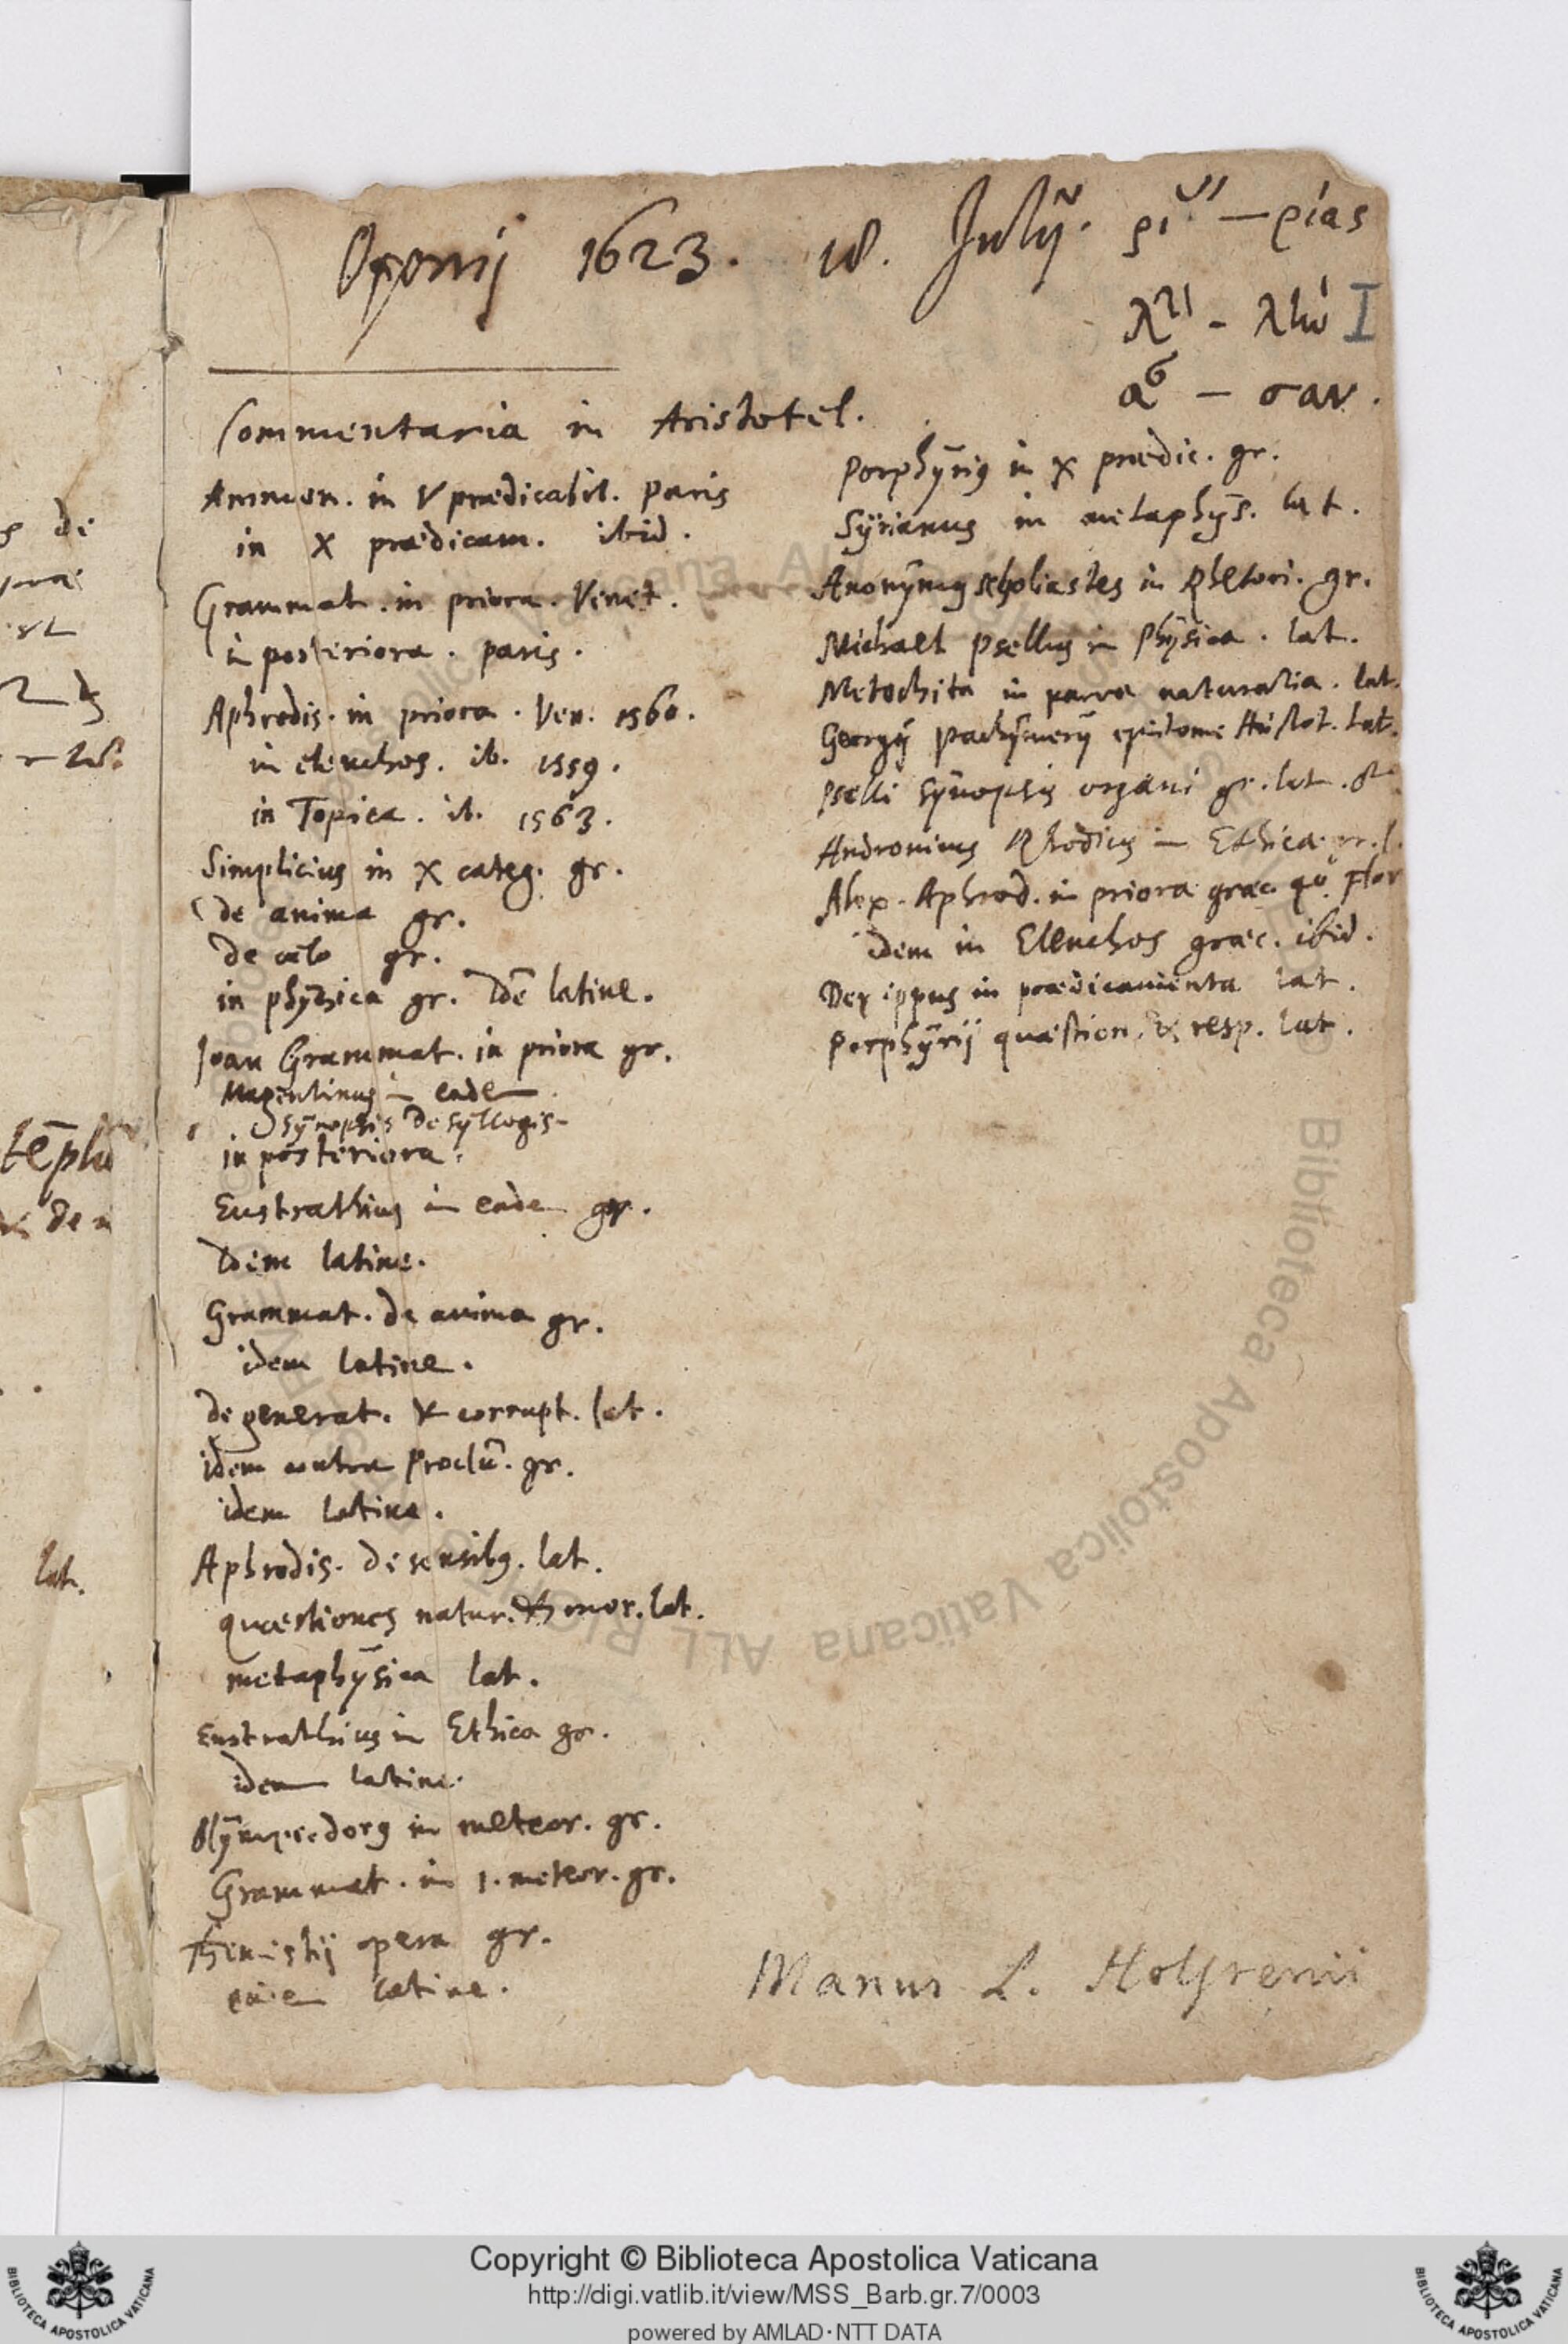 Oxonij 1623. 18. Julij.
ρι – ρίας
λ – λιω I
α – σαν.
Commentaria in Aristotel.
Ammon. in V prædicabil. Paris
in X prædicam. ibid.
Grammat. in priora. Venet.
in posteriora. paris.
Aphrodis. in priora. Ven. 1560.
in elenchos. ib. 1559.
in Topica. ib. 1563.
Simplicius in X categ. gr.
de anima gr.
de cælo gr.
in physica gr. Idē latine.
Joan Grammat. in priora gr.
Magentinus in eadem
Synopsis de syllogis-
in posteriora.
Eustrathius in eadem gr.
Idem latine.
Grammat. de anima gr.
idem latine.
de generat. & corrupt. lat.
idem contra Proclū. gr.
idem latine.
Aphrodis. de sensibg. lat.
quæstiones natur. & mor. lat.
metaphysica lat.
Eustrathius in Ethica gr.
idem latine.
Olympiodorg in meteor. gr.
Grammat. in 1. meteor. gr.
Themistij opera gr.
latine.
Porphyrig in X prædic. gr.
Syrianus in metaphys. lat.
Anonymg scholiastes in Rhetori. gr.
Michael Psellus in Physica. lat.
Metochita in parva naturalia. lat.
Georgij Pachymerij epitome Aristot. lat.
Pselli Synopsis organi gr. lat.
Andronicus Rhodius in Ethica gr. l.
Alex. Aphrod. in priora græc. Flor
idem in Elenchos græc. ibid.
Dexippus in prædicamenta lat.
Porphyrij quæstion. & resp. lat.
Manus L. Holstenii
de
lat.
tēplū
& de
lat.
Biblioteca Apostolica Vaticana ALL RIGHTS RESERVED
Copyright © Biblioteca Apostolica Vaticana
http://digi.vatlib.it/view/MSS_Barb.gr.7/0003
powered by AMLAD·NTT DATA
BIBLIOTECA APOSTOLICA VATICANA
BIBLIOTECA APOSTOLICA VATICANA